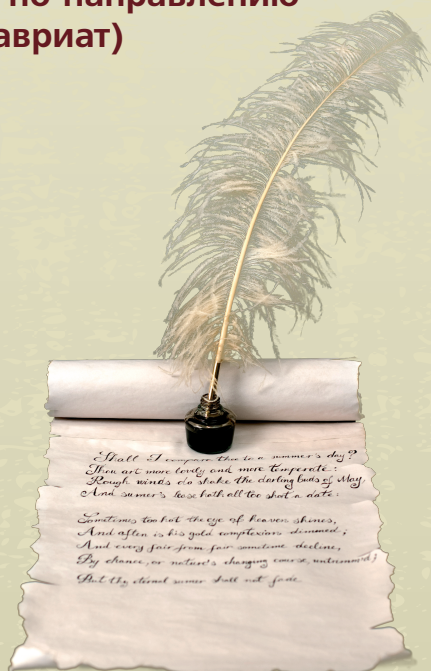 по направлению
авриат)
Shall I compare thee to a summer's day?
Thou art more lovely and more temperate:
Rough winds do shake the darling buds of May,
And sumer's lease hath all too short a date:
Sometimes too hot the eye of heaven shines,
And often is his gold complexions dimmed;
And every fair from fair sometime decline,
By chance, or nature's changing course, untrimm'd;
But thy eternal sumer shall not fade